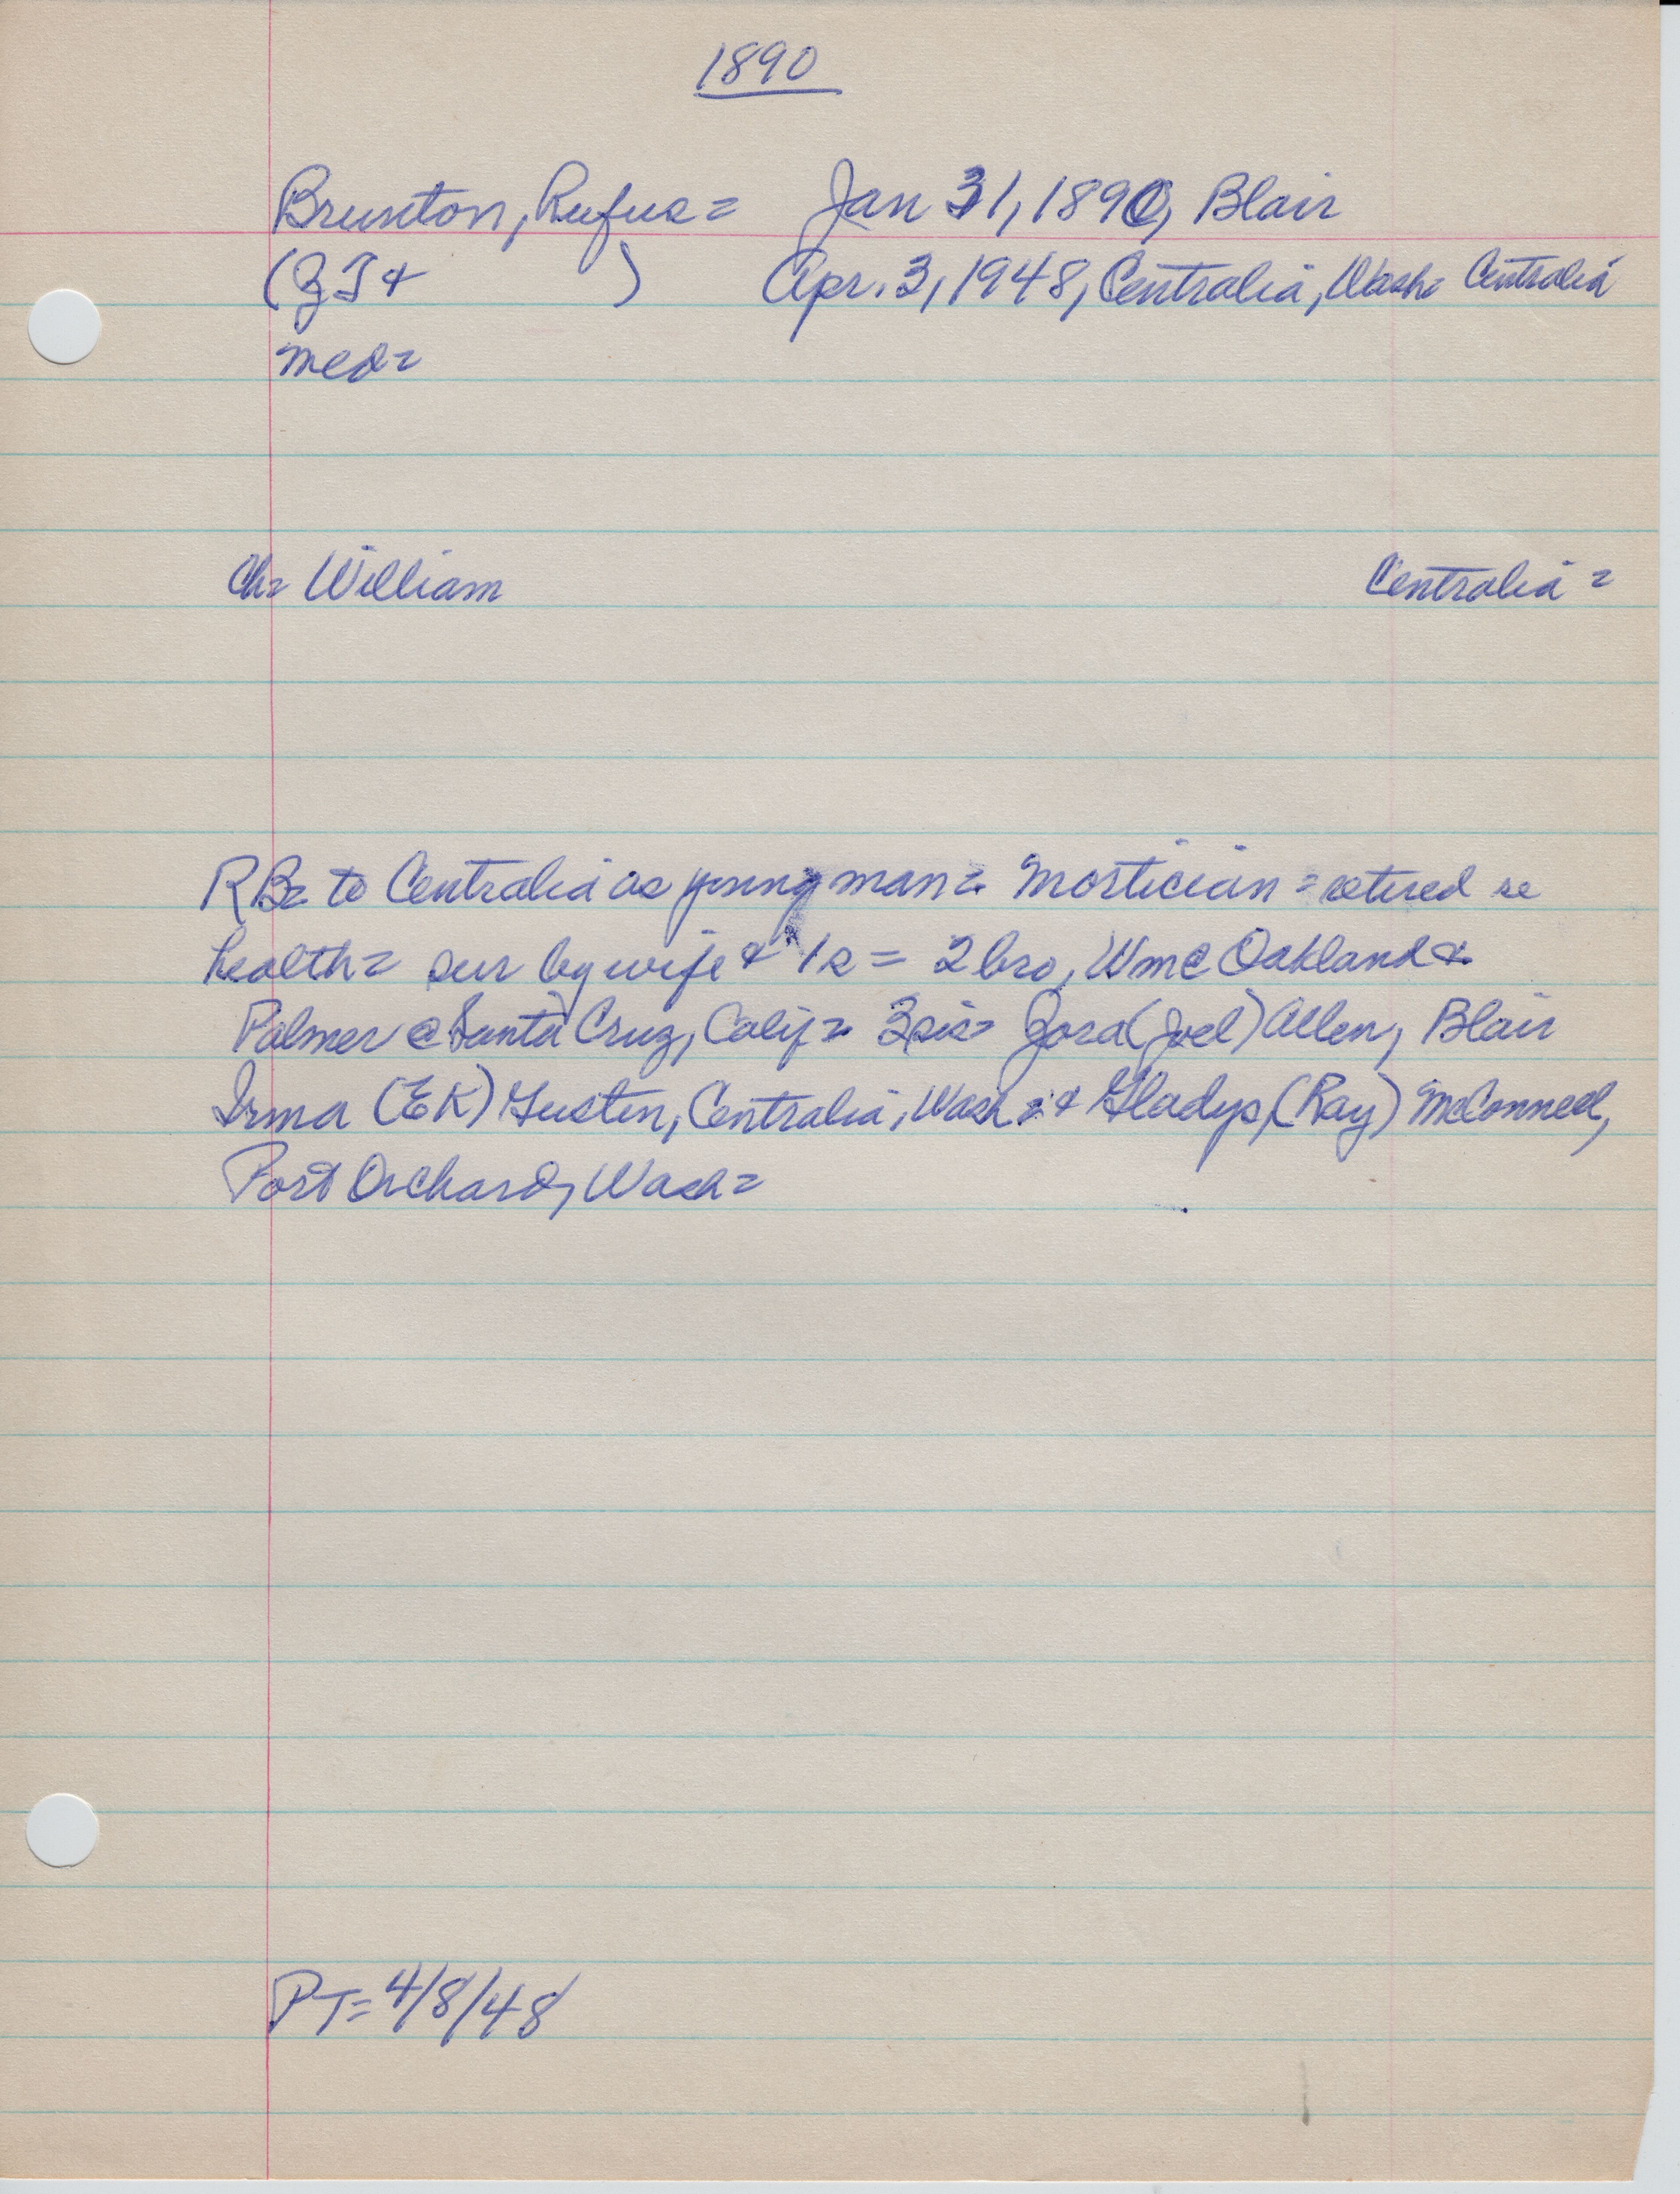 1890
Brunton, Rufus = Jan 31, 1890, Blair
(Z T & ) Apr. 3, 1948, Centralia, Wash= Centralia
med=
Ch= William Centralia =
RB= to Centralia as young man = Mortician = retired se
health= sur by wife & 1s = 2 bro, Wm @ Oakland &
Palmer @ Santa Cruz, Calif = 3 sis= Zora (Joel) Allen, Blair
Irma (EK) Gusten, Centralia, Wash = & Gladys, (Ray) McConnell,
Port Orchard, Wash =
PT= 4/8/48